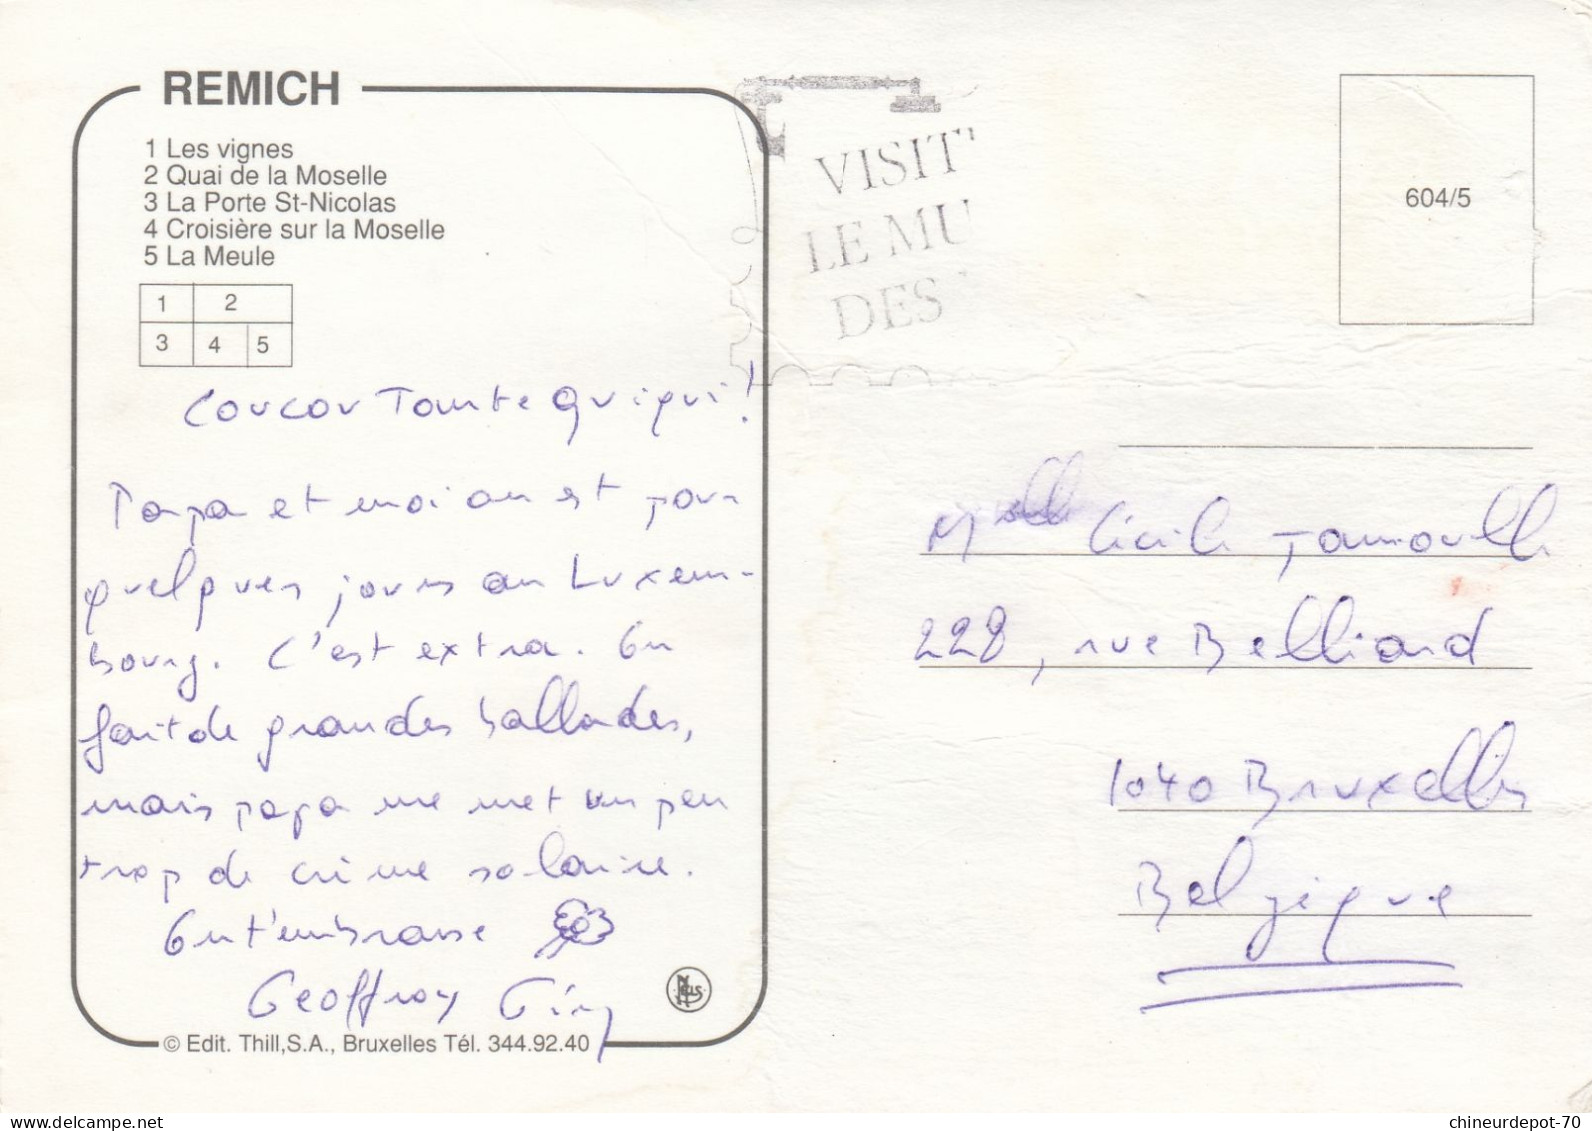 REMICH
1 Les vignes
2 Quai de la Moselle
3 La Porte St-Nicolas
4 Croisière sur la Moselle
5 La Meule
1 2
3 4 5
Coucou Tante Quiqui!
Papa et moi on est pour
quelques jours au Luxem-
bourg. C'est extra. On
fait de grandes ballades,
mais papa me met un peu
trop de crème solaire.
On t'embrasse
Geoffroy
© Edit. Thill,S.A., Bruxelles Tél. 344.92.40
NELS
VISIT
LE MU
DES
604/5
Melle Cécile
228, rue Belliard
1040 Bruxelles
Belgique
chineurdepot-70